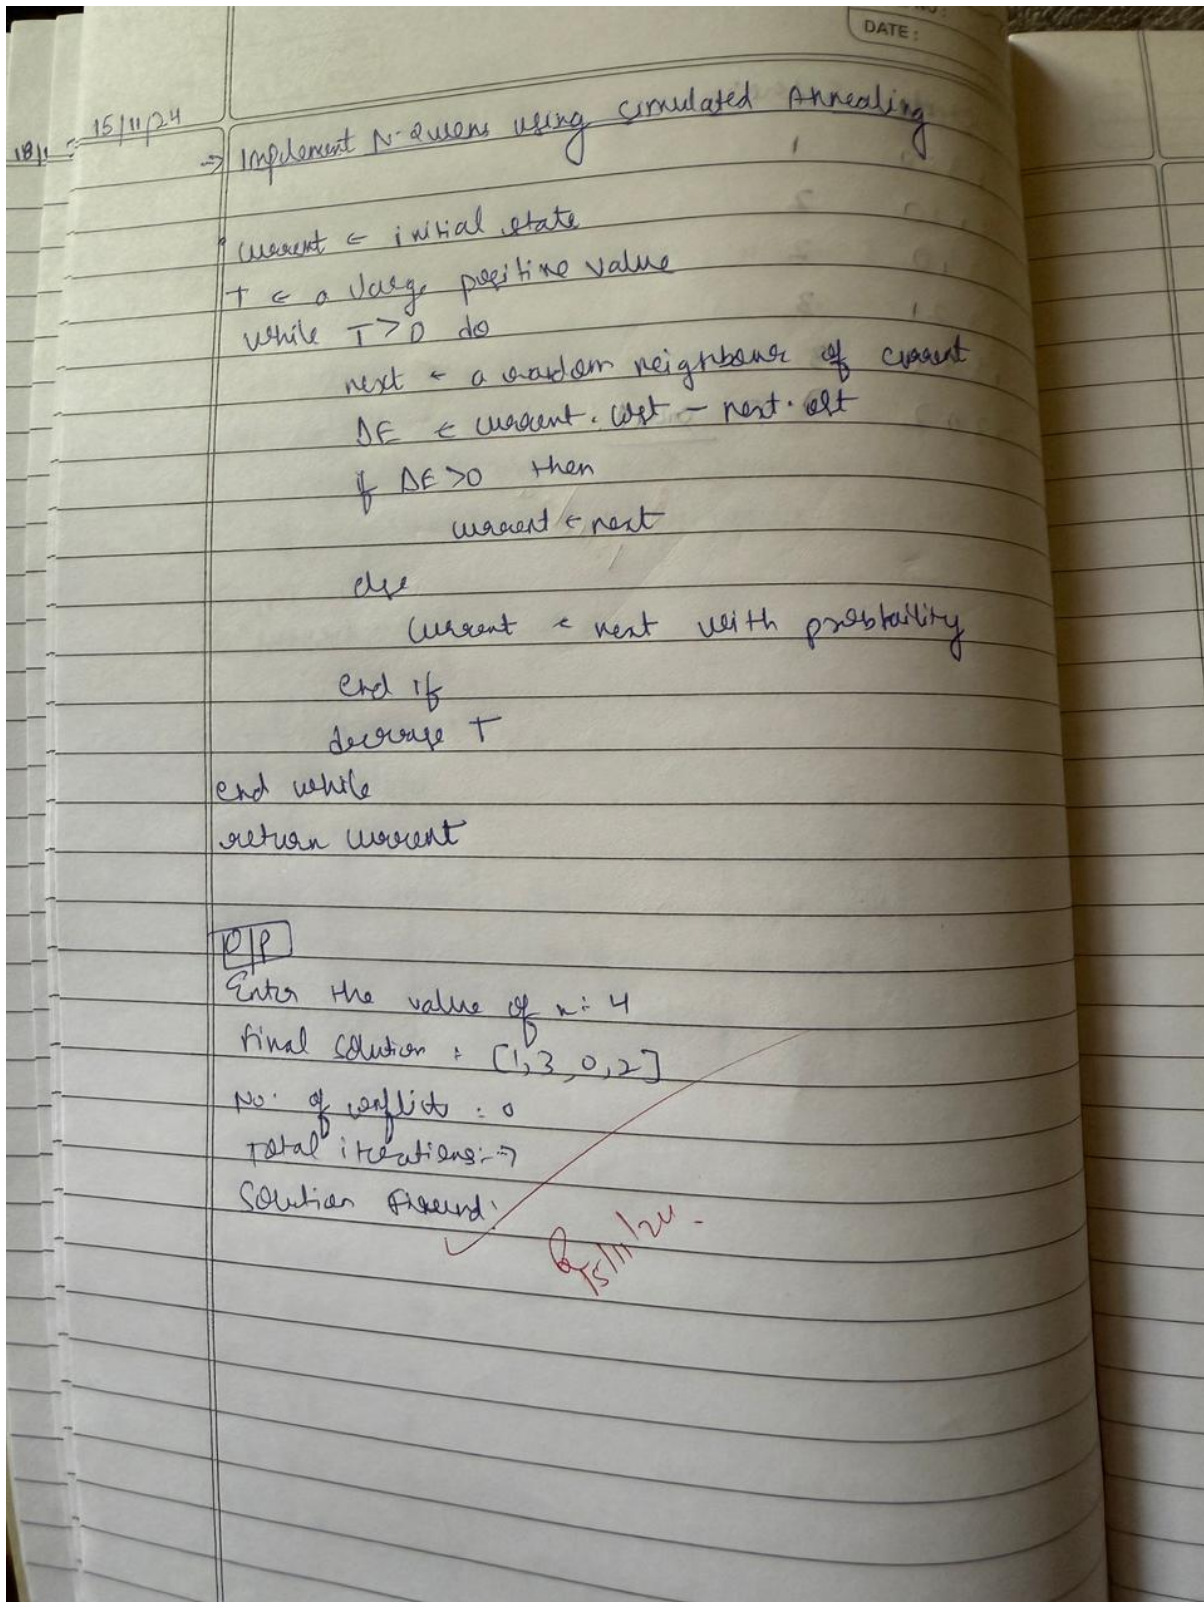 DATE:
15/11/24
18/1
⇒ Implement N-Queens using Simulated Annealing
current ← initial state
T ← a large positive value
while T>0 do
next ← a random neighbour of current
ΔE ← current.cost - next.cost
if ΔE>0 then
current ← next
else
current ← next with probtaility
end if
decrease T
end while
return current
O/P
Enter the value of n: 4
Final solution : [1,3,0,2]
No. of conflicts : 0
Total iterations:
Solution Found:
15/11/24.